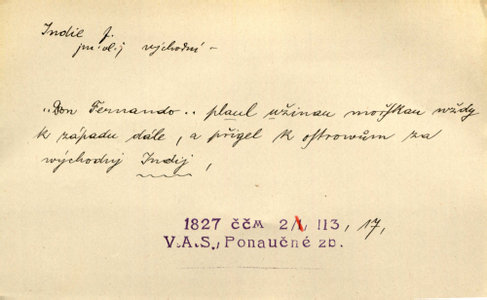 Indie f.
jm. vl.; východní –
„Don Fernando.. plaul užinau mořſkau wždy
k západu dále, a přigel k oſtrowům za
východnj Indij,
1827 ČČM 2/1, 113, 17,
V.A.S., Ponaučné zb.